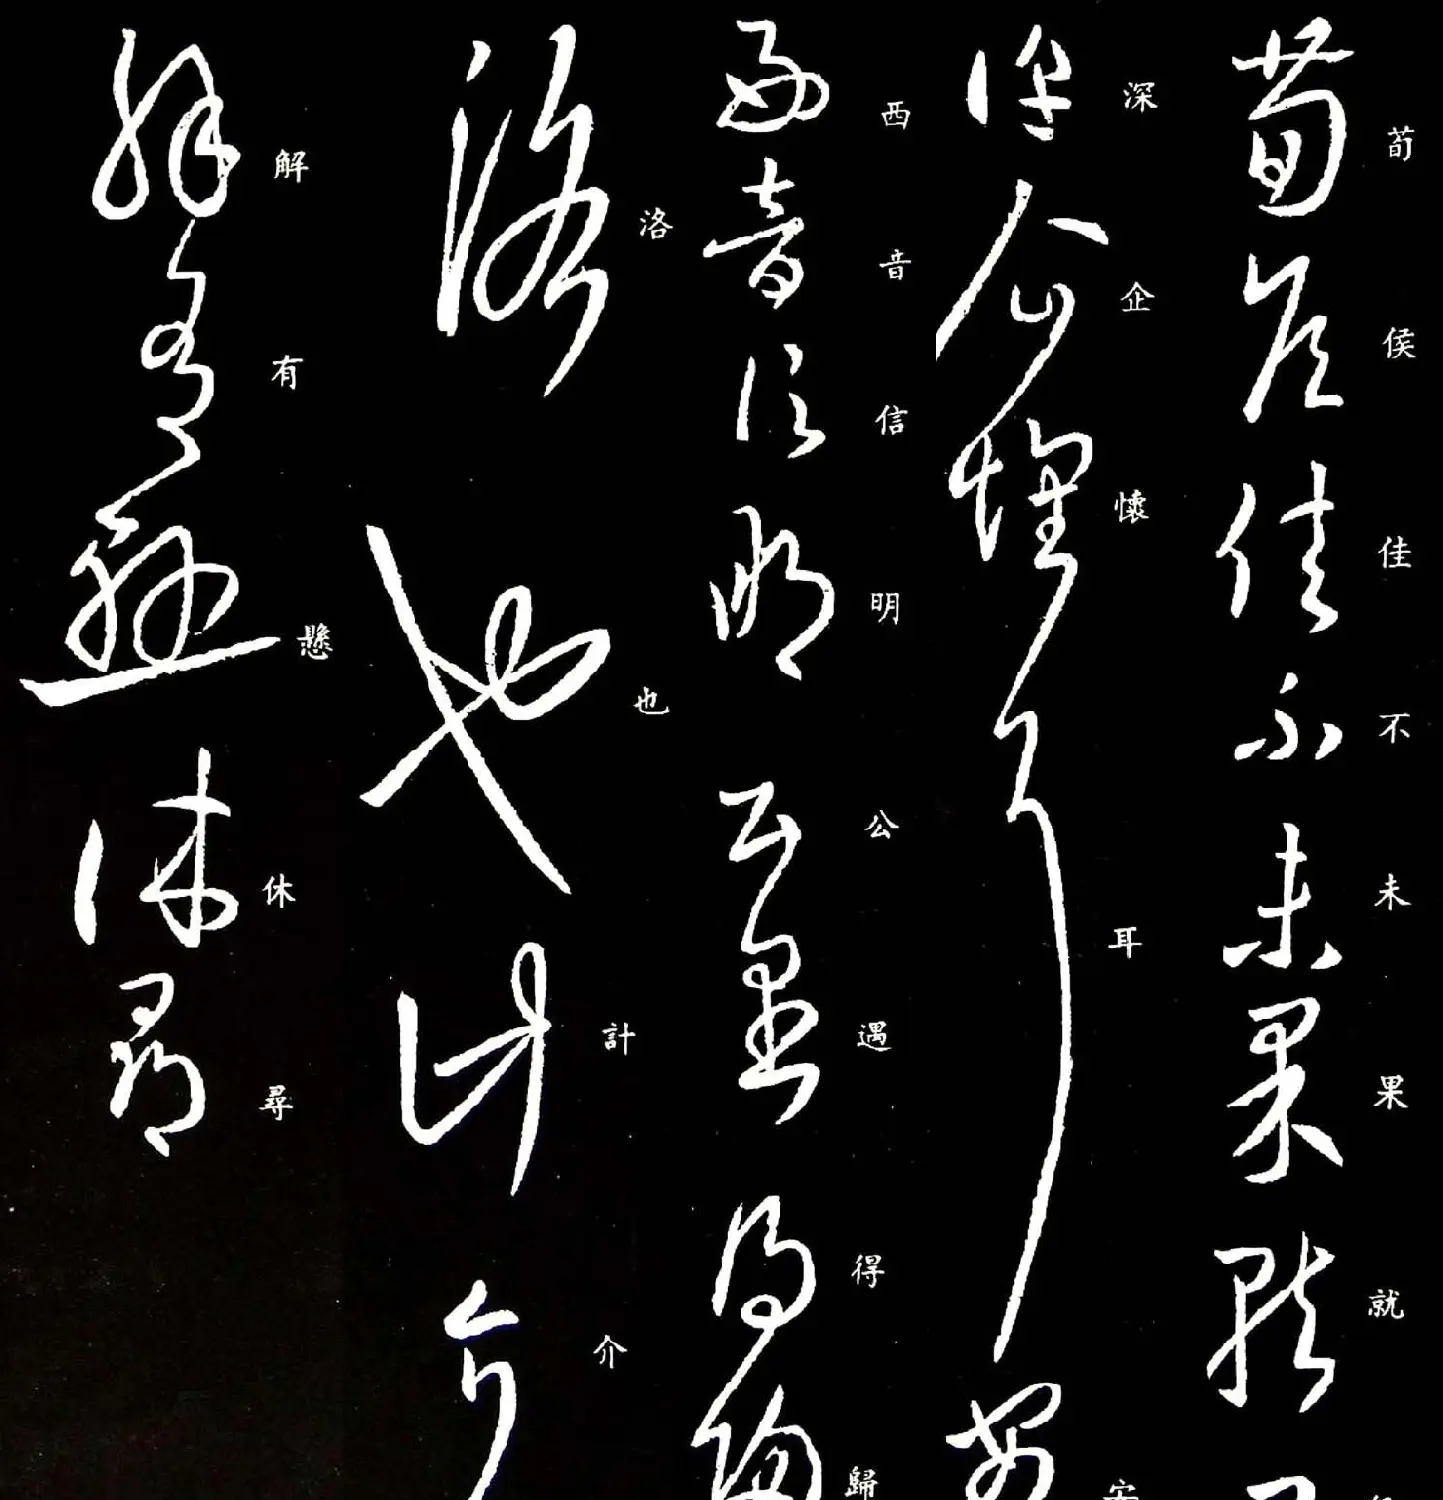 荀侯佳不未果就
深企懷耳安
西音信明公遇得歸
洛也計介
解有懸休尋